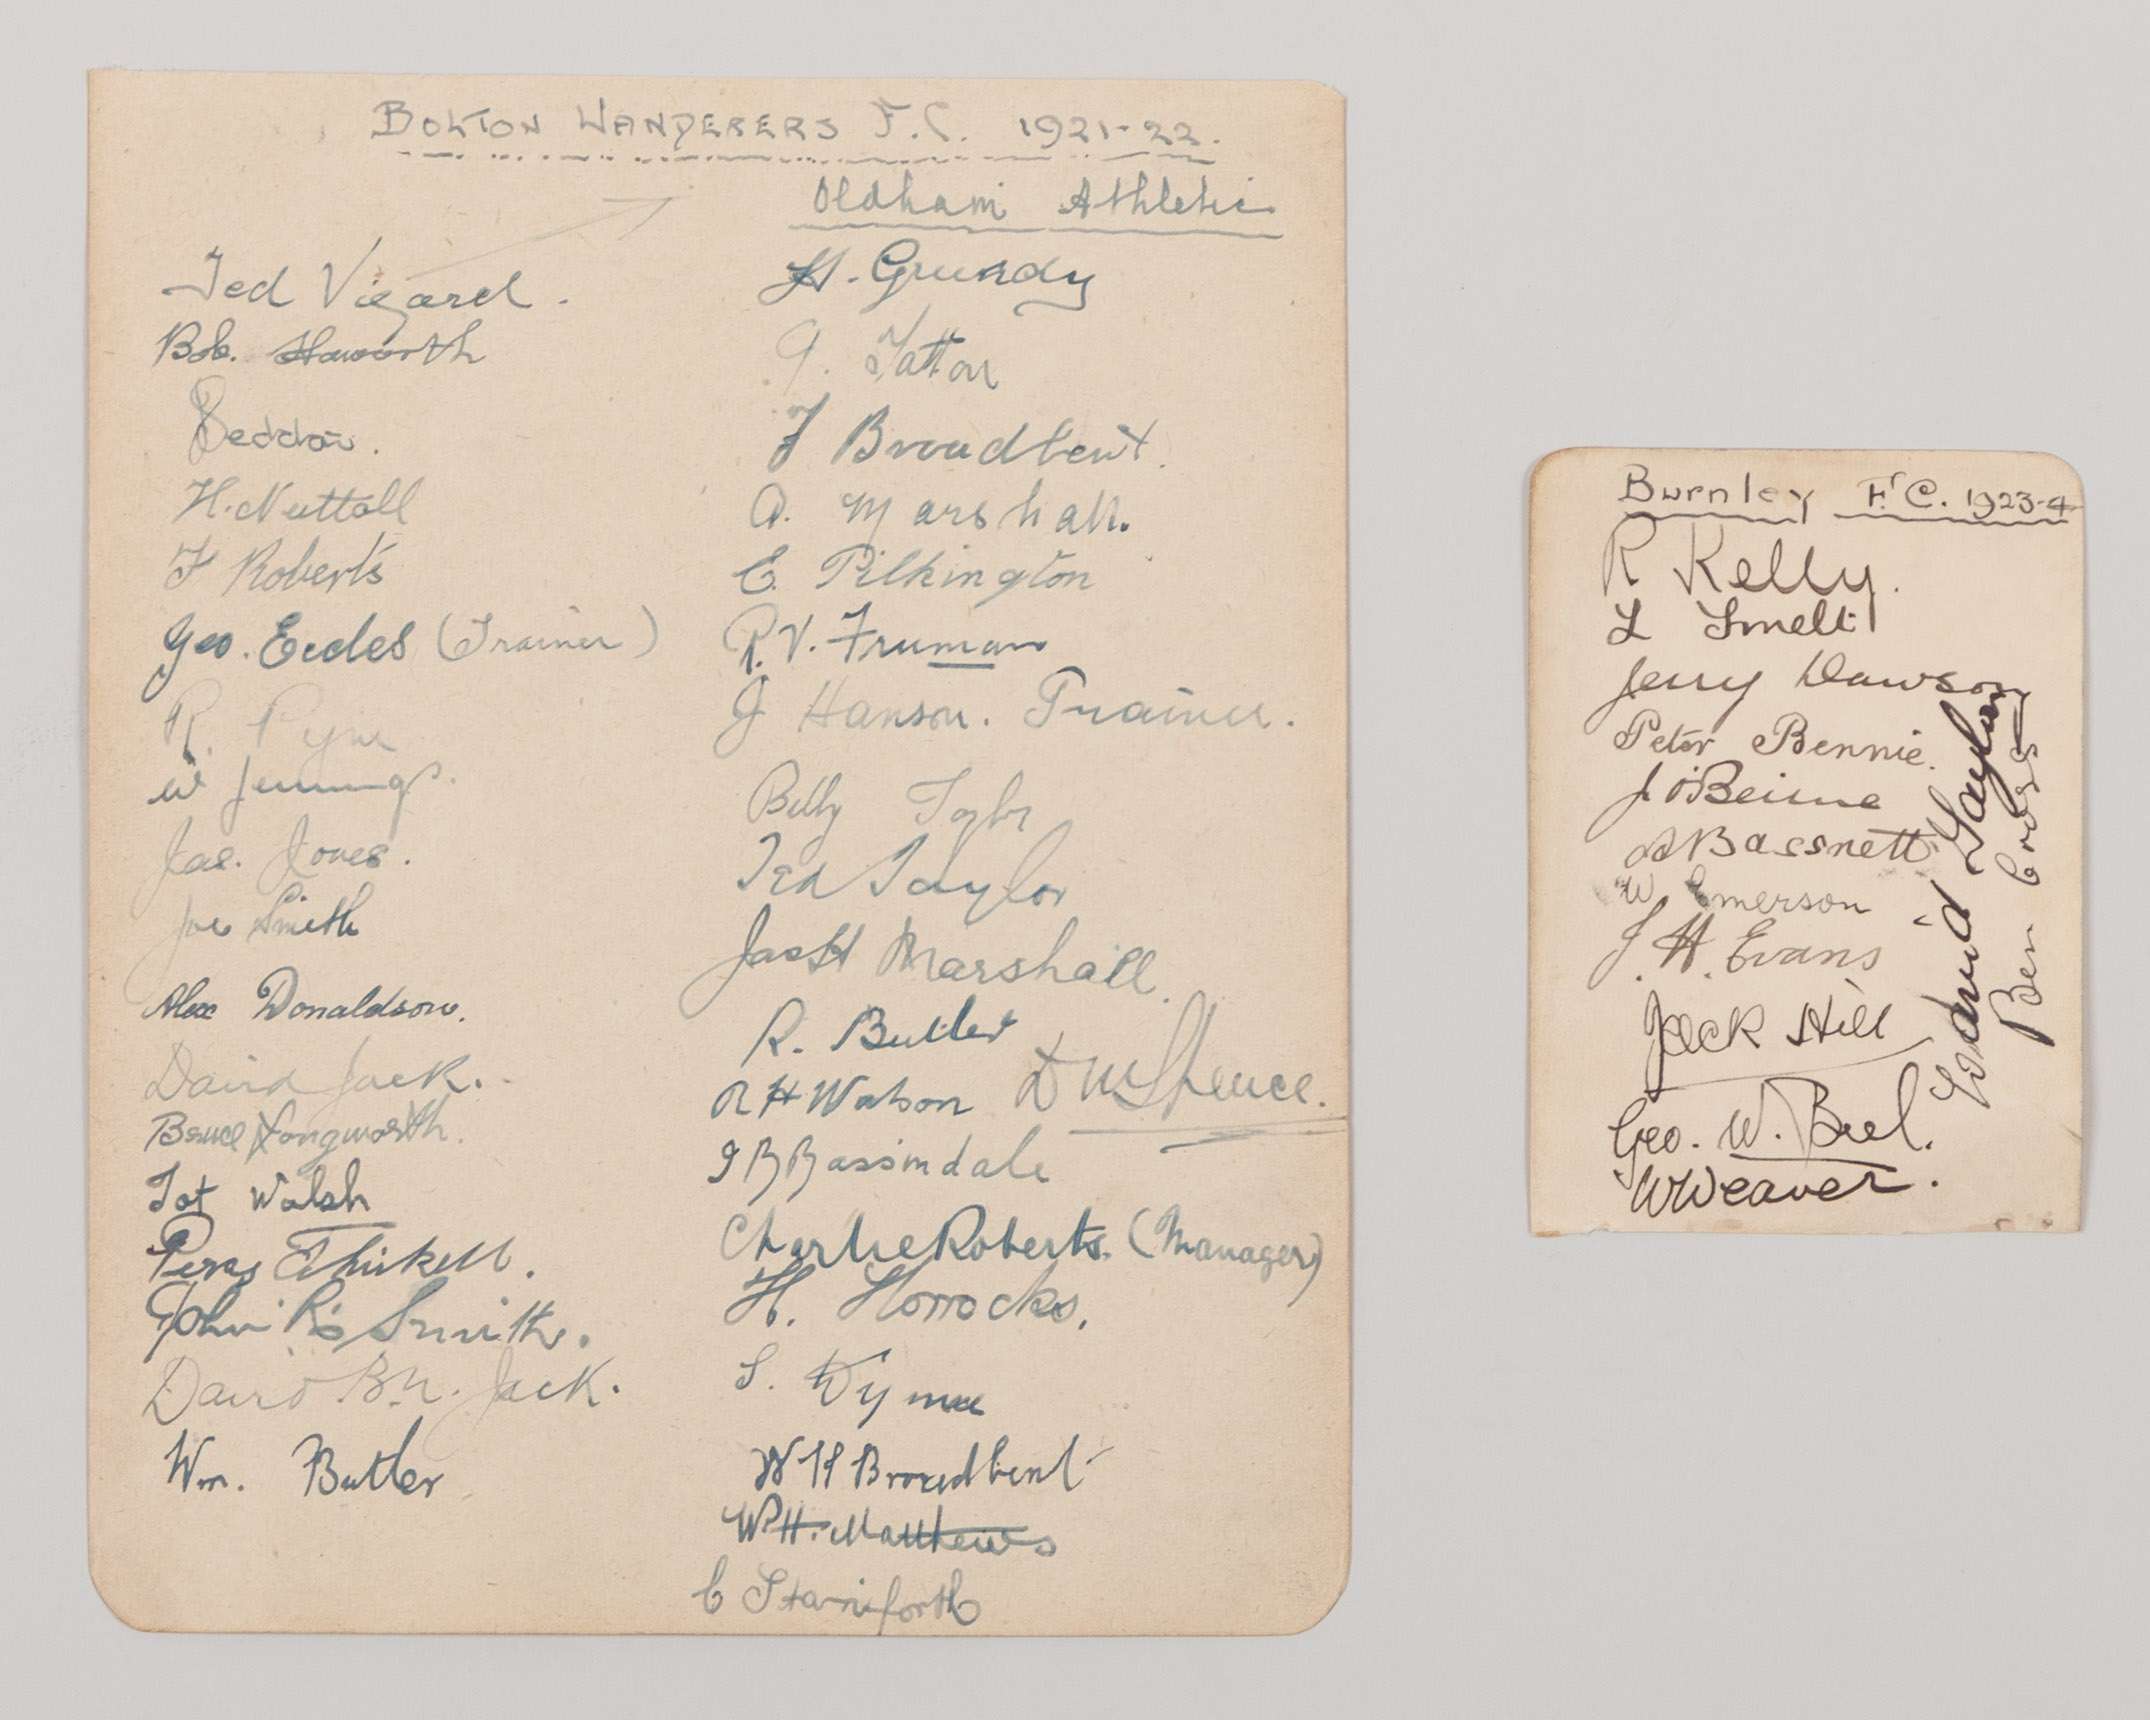 BOLTON WANDERERS F.C. 1921-22.
Oldham Athletic
Ted Vizard.
Bob. Haworth
Seddon.
H. Nuttall
F Roberts
Geo. Eccles (Trainer)
R. Pym
W Jennings.
Jas. Jones.
Joe Smith
Alex Donaldson.
David Jack.
Bruce Longworth.
Tot Walsh
Percy Thirkell.
John R. Smith.
David B.N. Jack.
Wm. Butler
H. Grundy
Tatton
F Broadbent.
A. Marshall.
E. Pilkington
R.V. Fruman
J Hanson. Trainer.
Billy Taylor
Ted Taylor
Jack Marshall.
R. Butler
R H Watson
D M Spence.
Bassindale
Charlie Roberts. (Manager)
H. Horrocks.
S. Wynne
W H Broadbent
W.H. Matthews
C Staniforth
Burnley F.C. 1923-4
R Kelly.
L Smelt
Jerry Dawson
Peter Bennie.
J O'Beirne
A Bassnett
W Emerson
J. H. Evans
Jack Hill
Geo. W. Beel.
W Weaver.
David Taylor
Ben Cross